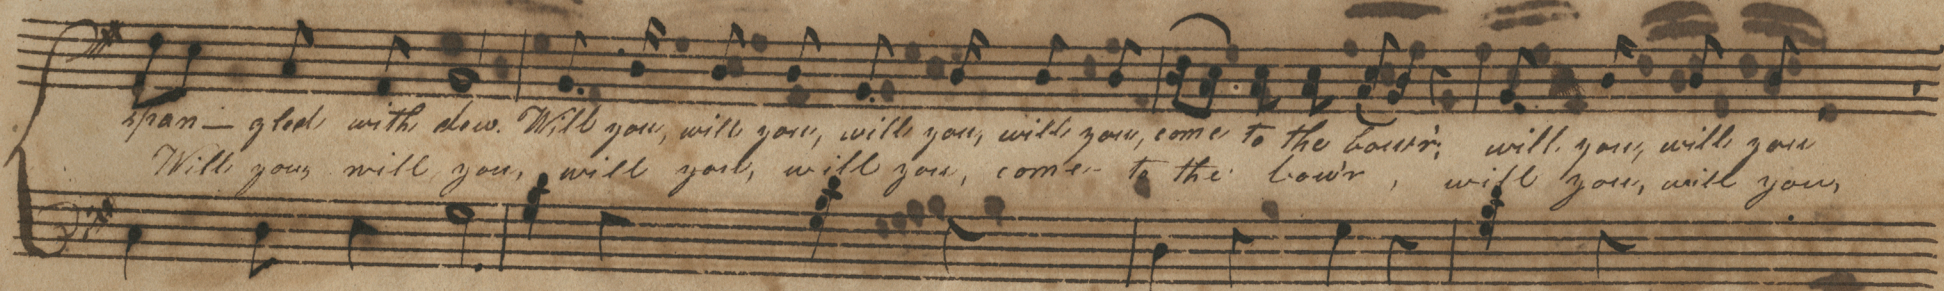 span- gled with dew. Will you, will you, will you, will you, come to the bow'r; will you, will you
Will you, will you, will you, will you, come to the bow'r, will you, will you,